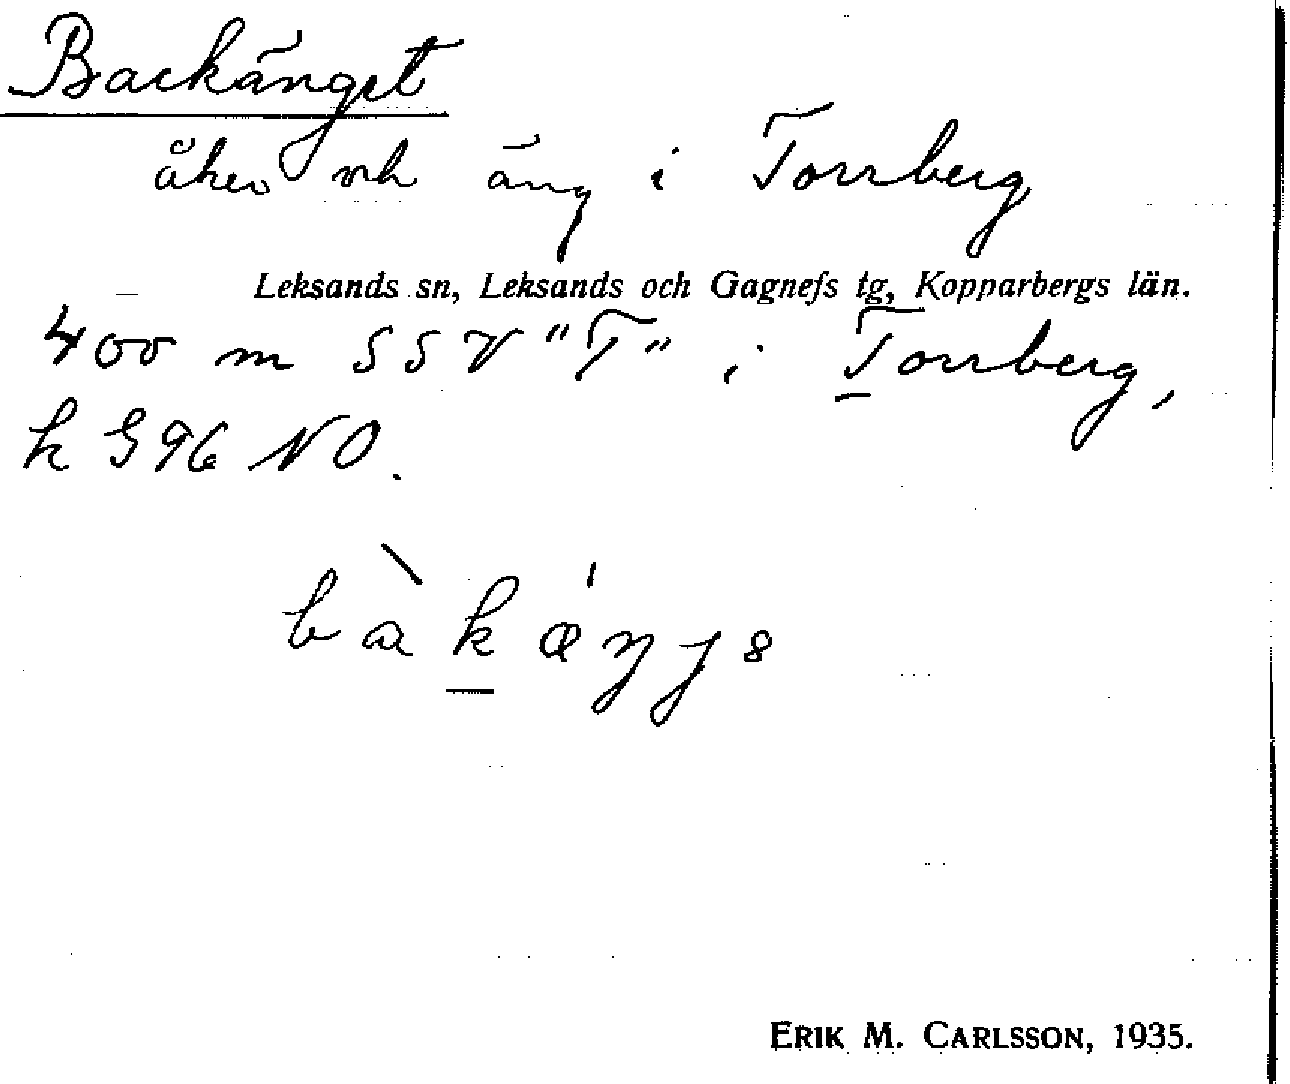 Backänget
åker och äng i Torrberg
Leksands sn, Leksands och Gagnefs tg, Kopparbergs län.
400 m SSV "T" i Torrberg,
k 396 NO.
bàkæŋɟə
ERIK M. CARLSSON, 1935.